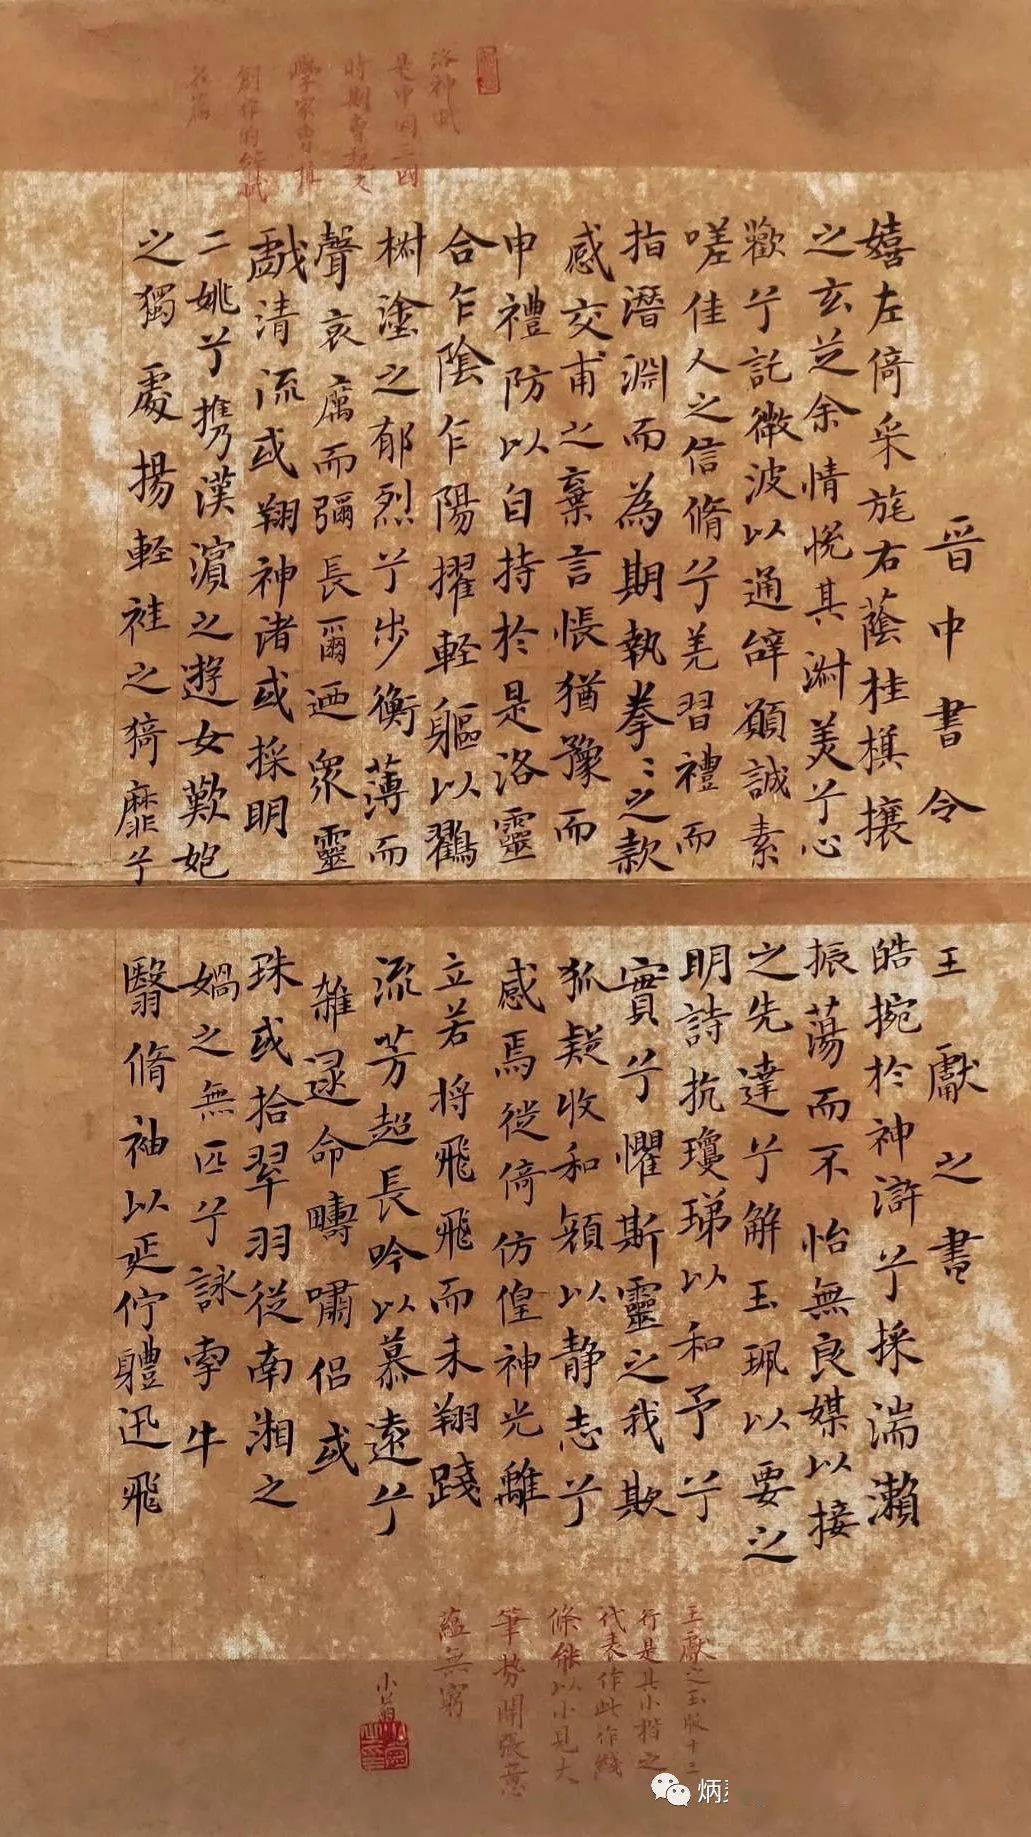 洛神賦
是中囯三囯
時期曹魏文
學家曹植
創作的辞賦
名篇
晋中書令
王獻之書
嬉左倚采旄右蔭桂旗攘
皓捥於神滸兮採湍瀨
之玄芝余情悅其淑美兮心
振蕩而不怡無良媒以接
歡兮託微波以通辭願誠素
之先達兮解玉珮以要之
嗟佳人之信脩兮羌習禮而
明詩抗瓊珶以和予兮
指潛淵而為期執拳〻之款
實兮懼斯靈之我欺
感交甫之棄言悵猶豫而
狐疑收和顏以静志兮
申禮防以自持於是洛靈
感焉徙倚仿偟神光離
合乍陰乍陽擢軽軀以鸖
立若将飛飛而未翔踐
椒塗之郁烈兮步衡薄而
流芳超長吟以慕遠兮
聲哀厲而彌長爾迺眾靈
雜遝命疇嘯侶或
戯清流或翔神渚或採明
珠或拾翠羽從南湘之
二姚兮携漢濵之遊女歎匏
媧之無匹兮詠牽牛
之獨處揚軽袿之猗靡兮
翳脩袖以延佇軆迅飛
王獻之玉版十三
行是其小楷之
代表作此作
條能以小見大
筆勢開張意
蘊無窮
炳